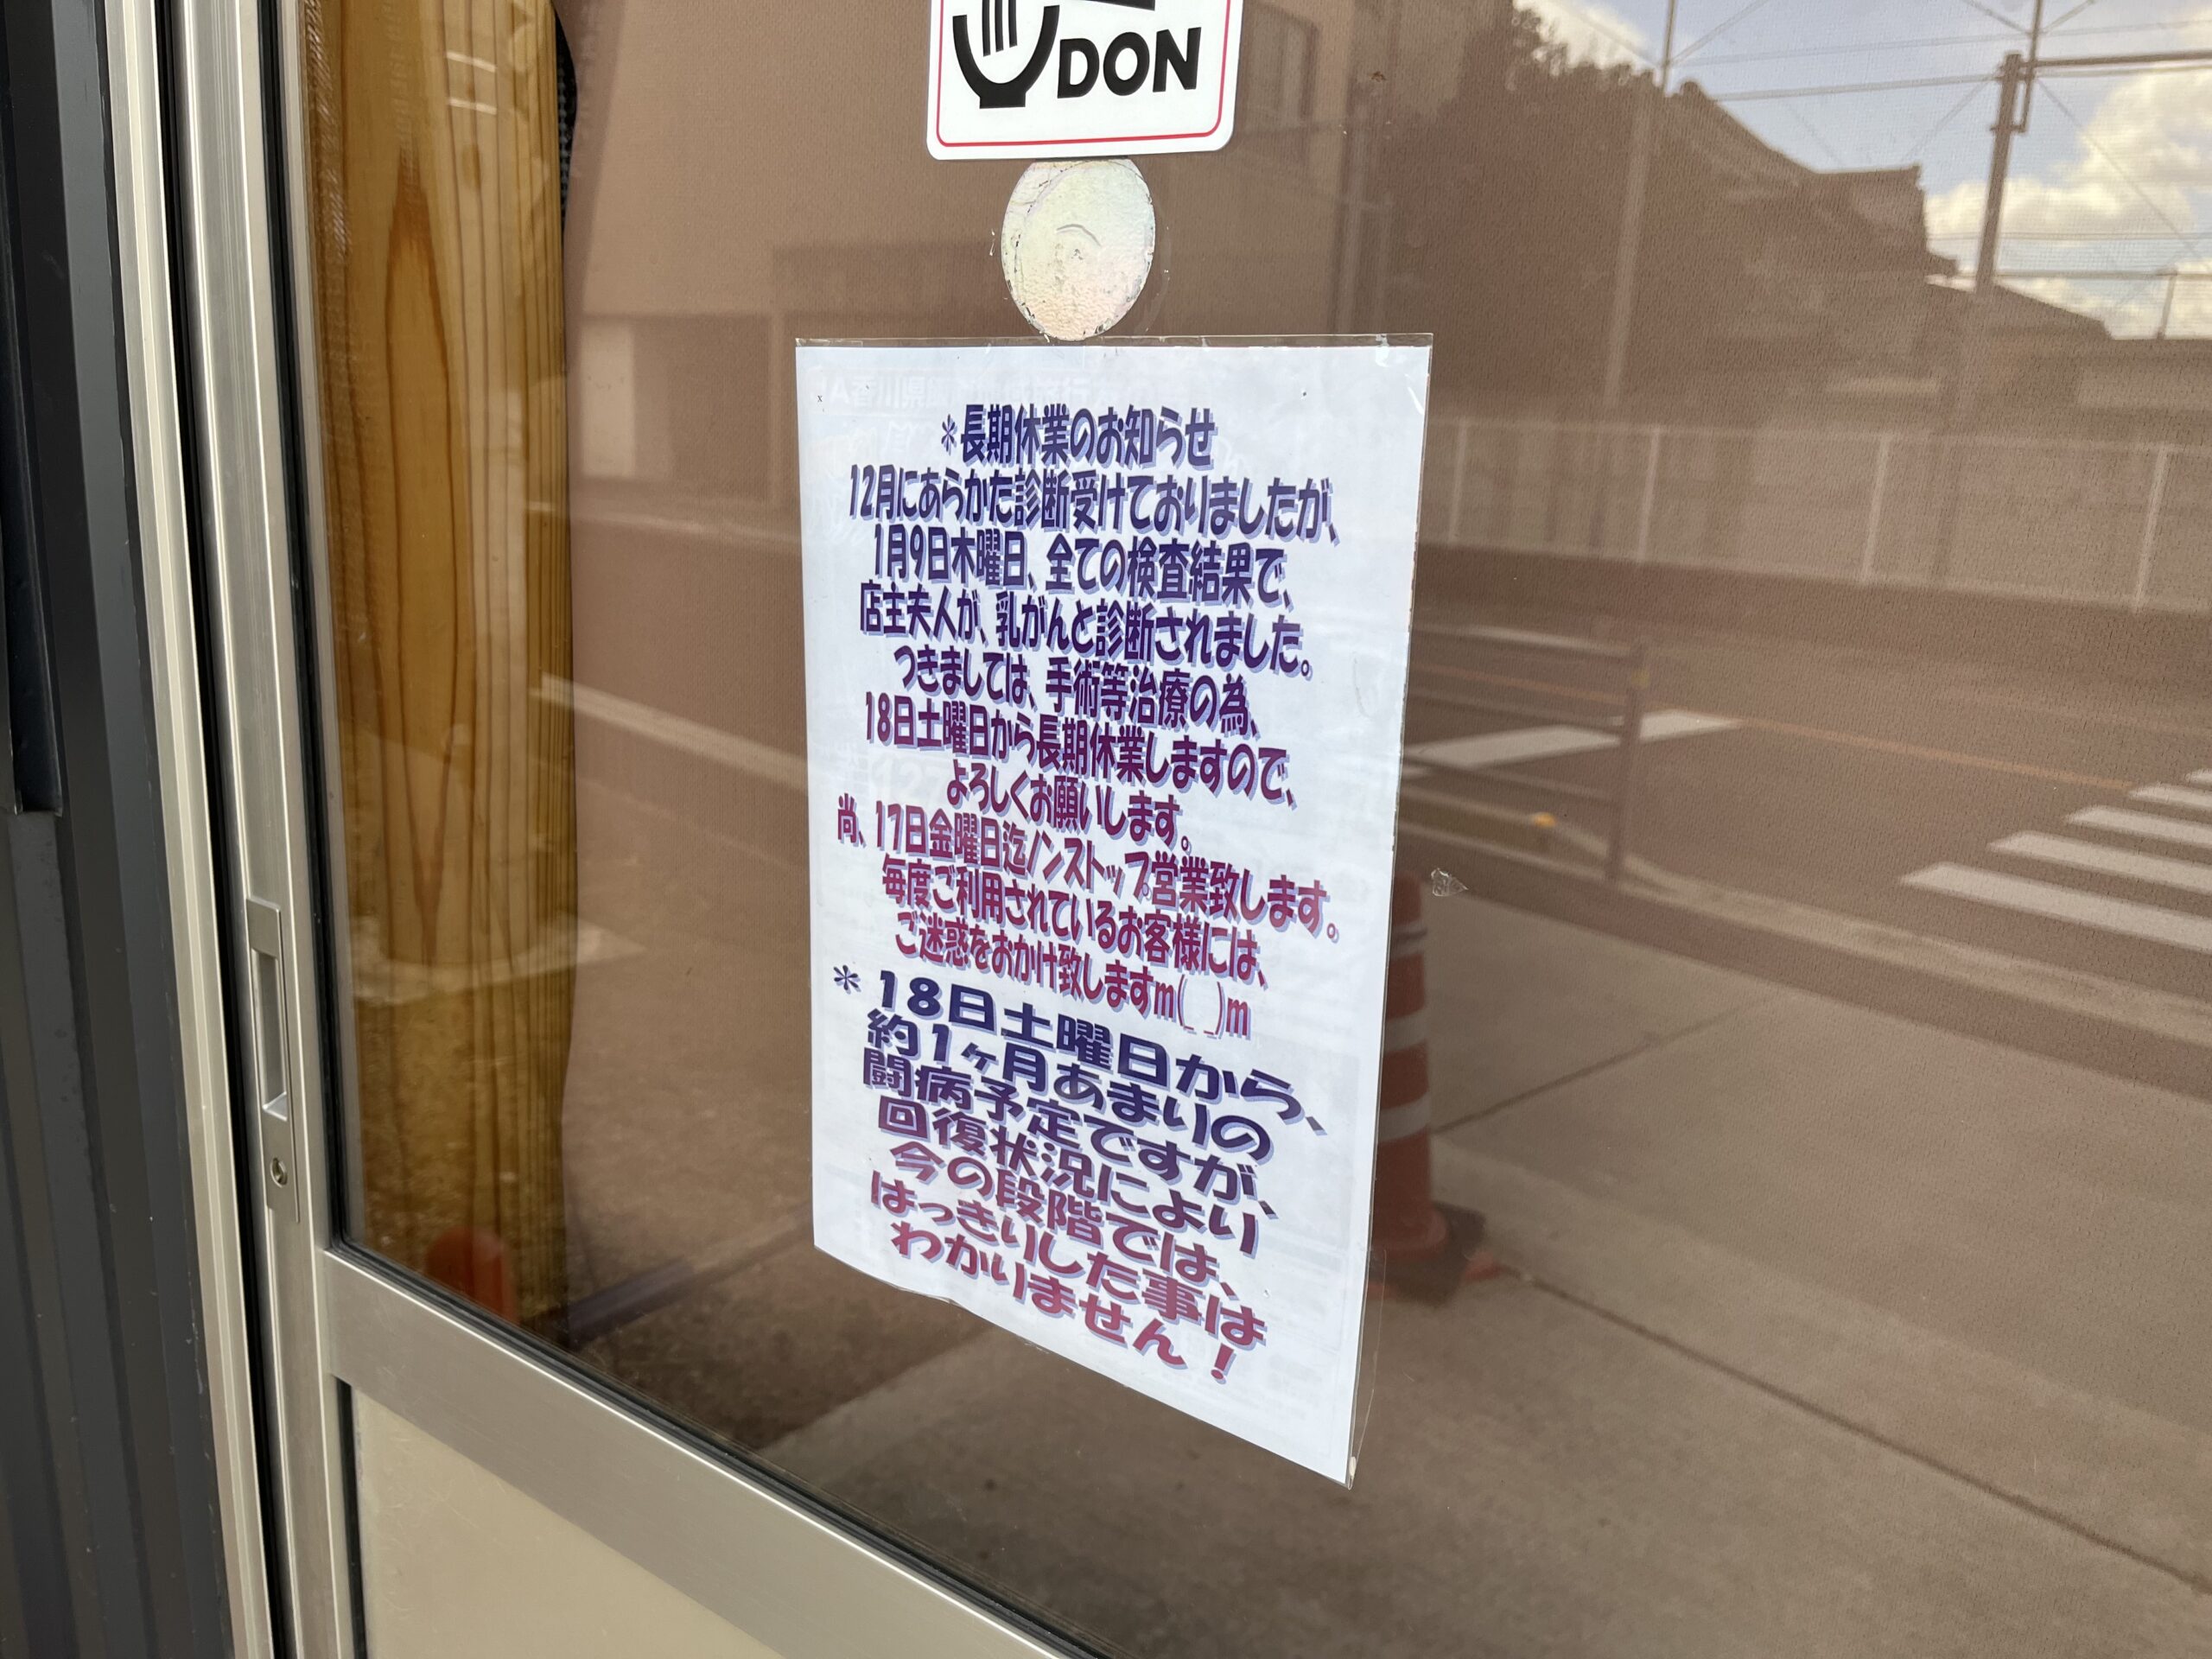 DON
*長期休業のお知らせ
12月にあらかた診断受けておりましたが、
1月9日木曜日、全ての検査結果で、
店主夫人が、乳がんと診断されました。
つきましては、手術等治療の為、
18日土曜日から長期休業しますので、
よろしくお願いします。
尚、17日金曜日迄ノンストップ営業致します。
毎度ご利用されているお客様には、
ご迷惑をおかけ致しますm(_ _)m
* 18日土曜日から、
約1ヶ月あまりの
闘病予定ですが、
回復状況により
今の段階では、
はっきりした事は
わかりません!